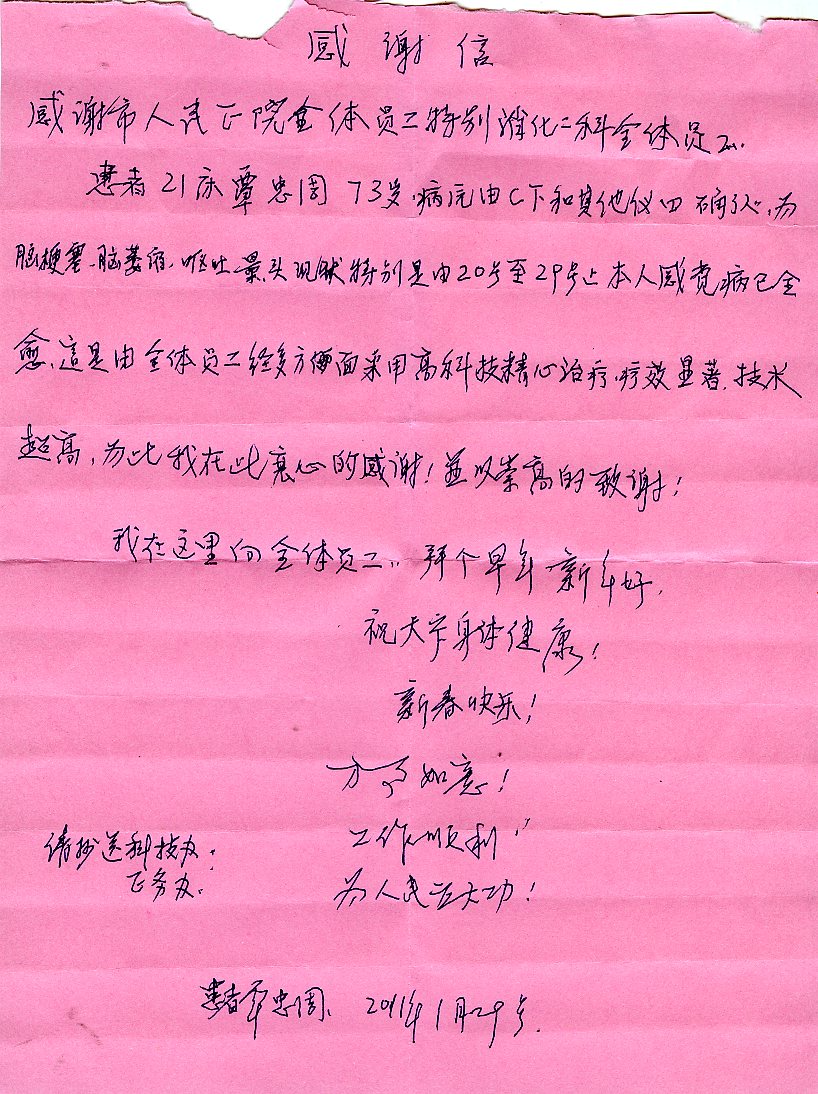 感谢信
感谢市人民医院全体员工特别消化二科全体员工.
患者21床覃忠周 73岁,病况由C下和其他仪 确认,为
脑梗塞、脑萎缩,呕吐 晕头现状特别是由20号至29号止本人感觉病已全
愈,這是由全体员工经多方面采用高科技精心治疗,疗效显著,技术
超高,为此我在此衷心的感谢!並以崇高的致谢!
我在这里向全体员工,拜个早年 新年好,
祝大家身体健康!
新春快乐!
万事如意!
请抄送科技办: 工作顺利!
医务办: 为人民立大功!
患者覃忠周、2011年1月29号.